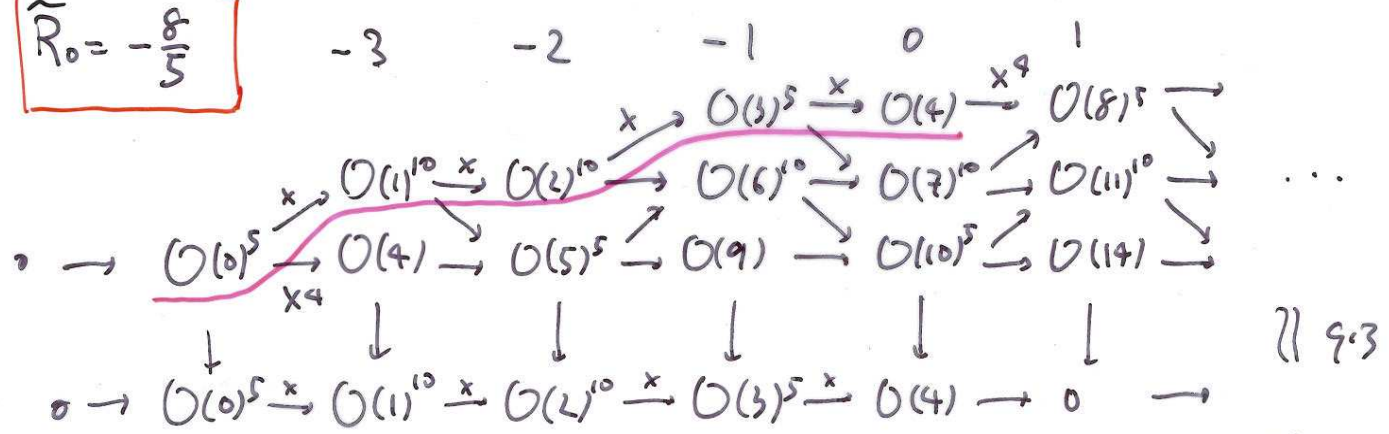 R̃₀ = -8/5 -3 -2 -1 0 1
O(3)⁵ →x O(4) →x⁴ O(8)⁵ →
x
O(1)¹⁰ →x O(2)¹⁰ → O(6)¹⁰ → O(7)¹⁰ → O(11)¹⁰ → ...
x
0 → O(0)⁵ → O(4) → O(5)⁵ → O(9) → O(10)⁵ → O(14) →
x⁴
↓ ↓ ↓ ↓ ↓ ↓ 9.3
0 → O(0)⁵ →x O(1)¹⁰ →x O(2)¹⁰ →x O(3)⁵ →x O(4) → 0 →